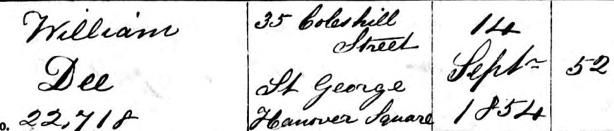 William
Dee
No. 22,718
35 Coleshill
Street
St George
Hanover Square
14
Septr
1854
52